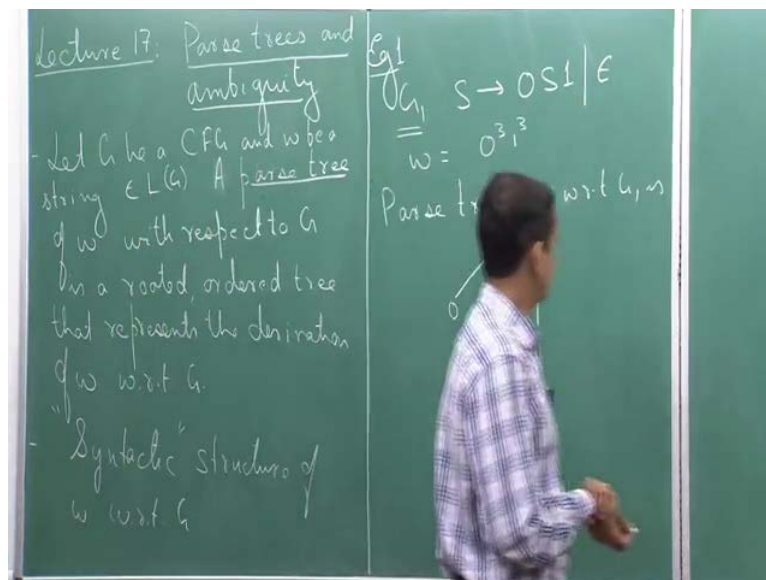 Lecture 17: Parse trees and
ambiguity
- Let G be a CFG and w be a
string ∈ L(G) A parse tree
of w with respect to G
is a rooted, ordered tree
that represents the derivation
of w w.r.t G.
- "Syntactic" structure of
w w.r.t. G
Eg1
G₁ S → 0S1 | ε
w = 0³1³
Parse w.r.t G₁ is
0